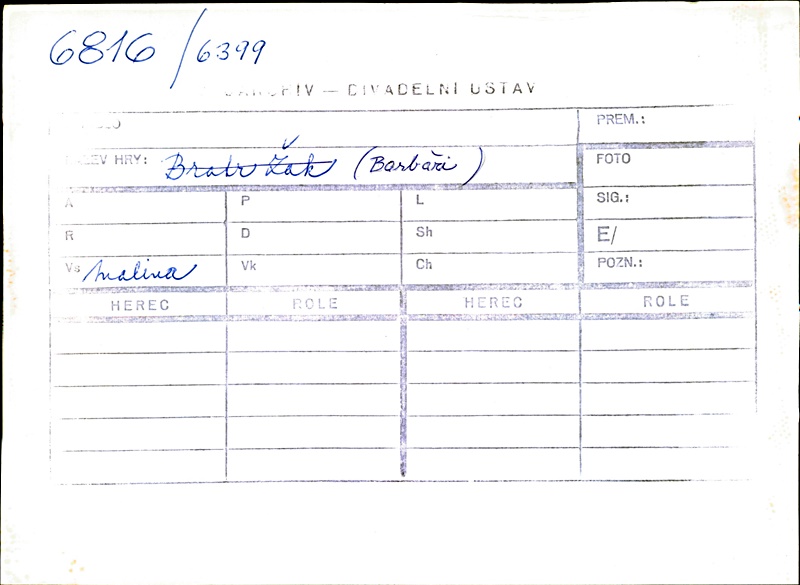 6816/6399
— DIVADELNÍ ÚSTAV
PREM.:
HRY: Bratr Žak (Barbaři)
FOTO
A P L SIG.:
R D Sh E/
Vs Malina Vk Ch POZN.:
HEREC ROLE HEREC ROLE